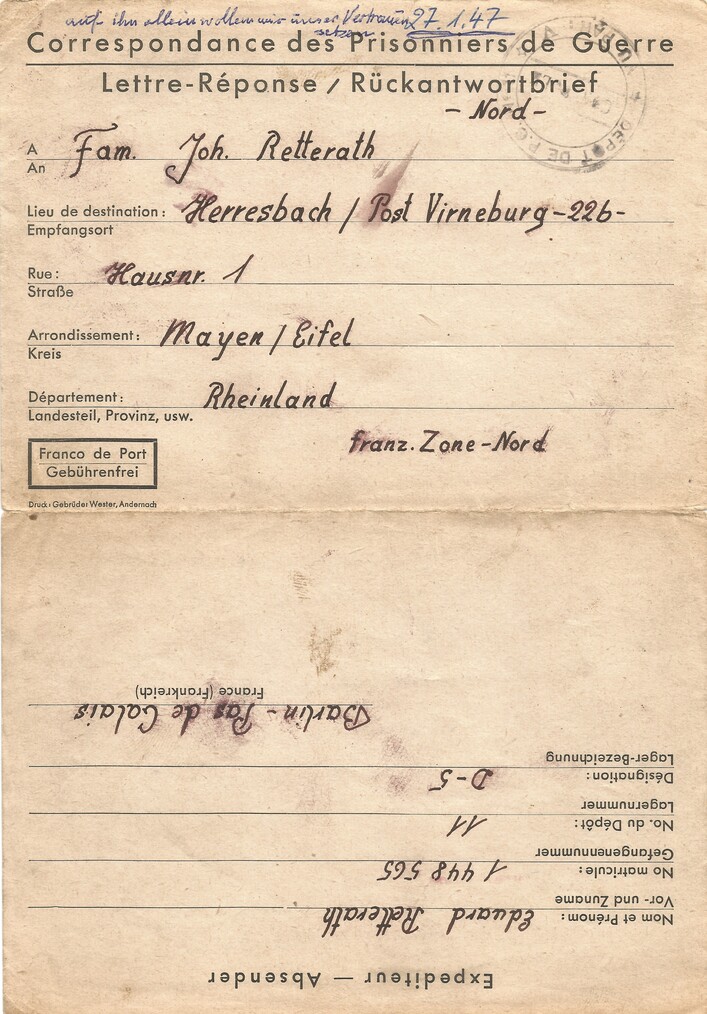 auf ihn allein wollen wir unser Vertrauen 27.1.47
setzen
Correspondance des Prisonniers de Guerre
Lettre-Réponse / Rückantwortbrief
- Nord -
A Fam. Joh. Retterath
An
Lieu de destination: Herresbach / Post Virneburg-22b-
Empfangsort
Rue: Hausnr. 1
Straße
Arrondissement: Mayen / Eifel
Kreis
Département: Rheinland
Landesteil, Provinz, usw.
franz. Zone-Nord
Franco de Port
Gebührenfrei
Druck: Gebrüder Wester, Andernach
DEPOT DE P.G.
Expediteur — Absender
Nom et Prénom: Eduard Retterath
Vor- und Zuname
No matricule: 1 448 565
Gefangenennummer
No. du Dépôt: 11
Lagernummer
Désignation: D-5
Lager-Bezeichnung
Barlin - Pas de Calais
France (Frankreich)